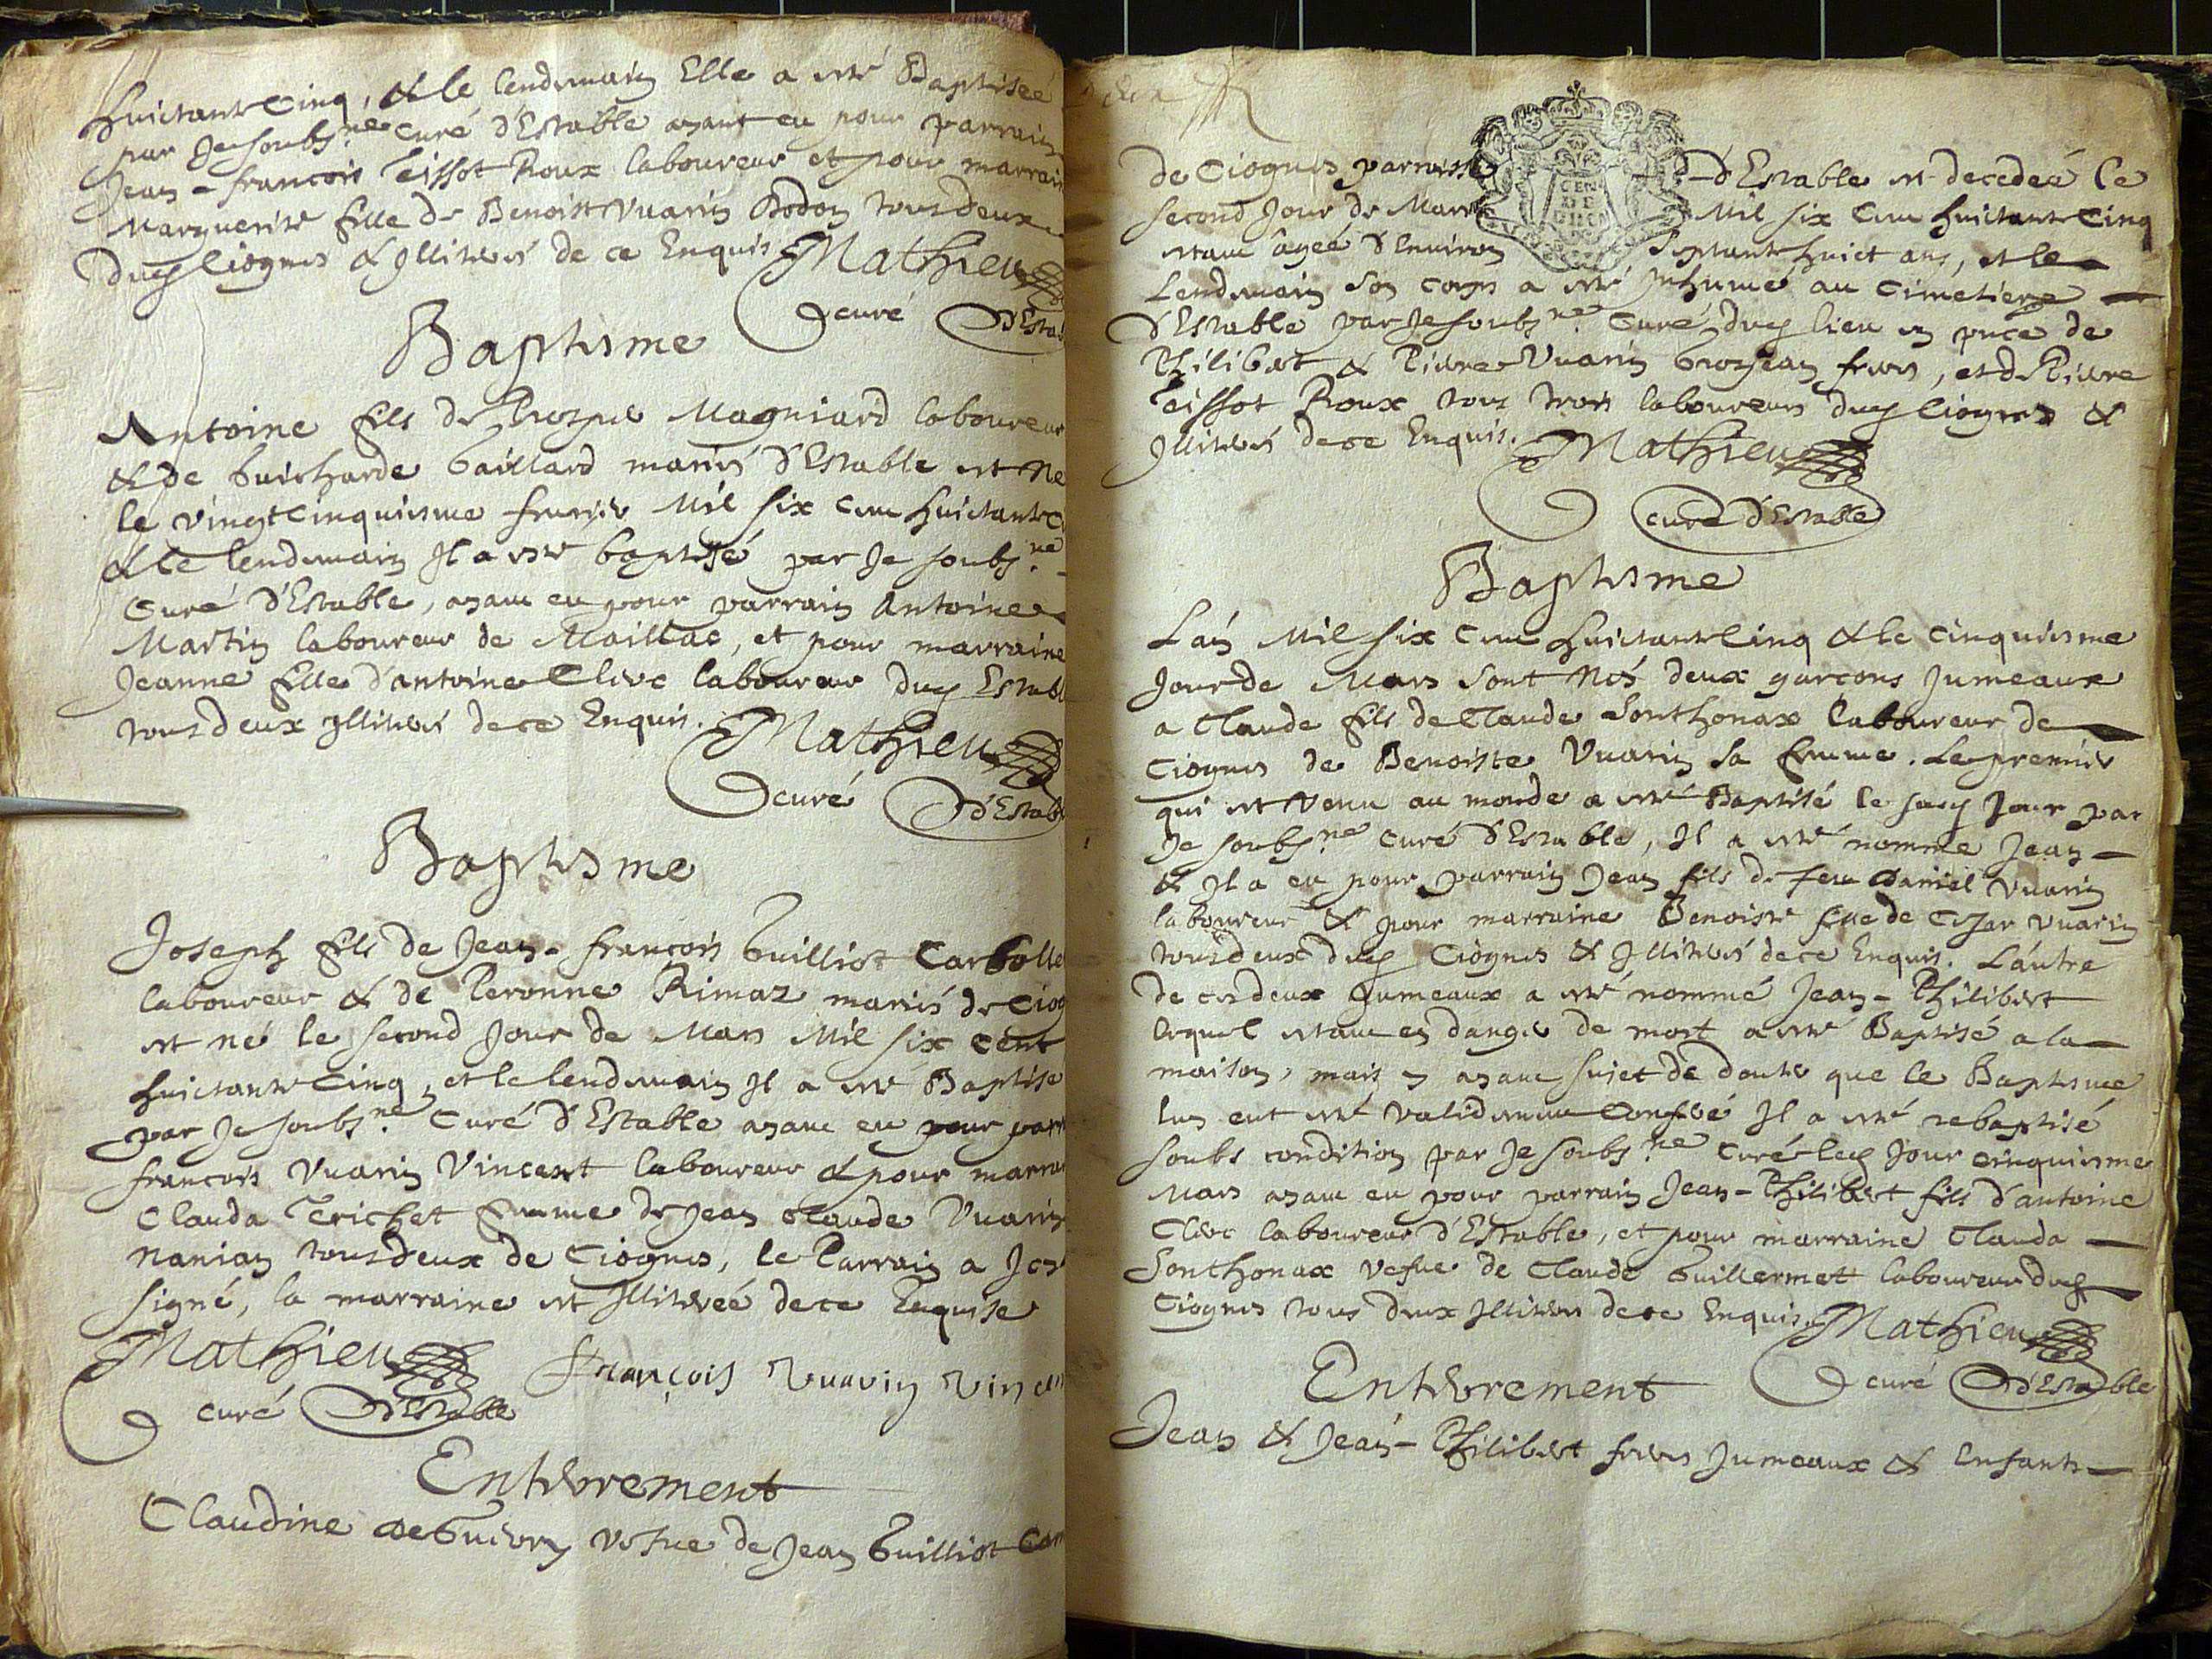 huictante Cinq, & le lendemain Elle a esté Baptisée
par Je soubs.né Curé d'Estable ayant eu pour parrain
Jean-francois Tissot Roux laboureur et pour marrain
Marguerite fille de Benoist Vuarin Bodon tous deux
dud Ciognes & Illiterés de ce Enquis Mathieu
curé d'Esta
Baptesme
Antoine fils de Prosper Magniard laboureur
& de Guicharde Gaillard mariés d'Estable est Né
le vingtcinquiesme feurier Mil six cent huictante C
& le lendemain Il a esté baptisé par Je soubs.né
Curé d'Estable, ayant eu pour parrain Antoine
Martin laboureur de Maillac, et pour marraine
Jeanne fille d'antoine Clerc laboureur dud Establ
tous deux Illiterés de ce Enquis. Mathieu
curé d'Establ
Baptesme
Joseph fils de Jean-françois Guilliot Carbolle
laboureur & de Peronne Rimaz mariés de Ciog
est né le second Jour de Mars Mil six cent
huictante Cinq, et le lendemain Il a esté Baptisé
par Je soubs.né Curé d'Estable ayant eu pour parr
francois Vuarin Vincent laboureur & pour marrai
Clauda Trichet femme de Jean Claude Vuarin
Nanian tous deux de Ciognes, le Parrain a Icy
signé, la marraine est Illiterée de ce Enquise
Mathieu françois vuarin vincen
curé d'Estable
Enterrement
Claudine vefue de Jean Guilliot Car
de Ciognes parroisse d'Estable est decedeé le
second Jour de Mars Mil six cent huictante Cinq
estant âgeé d'Enuiron septante huict ans, et le
Lendemain son corps a esté Inhumé au Cimetiere
d'Estable par Je soubs.né Curé dud lieu en pnce de
Philibert & Pierre Vuarin Grosjean freres, et de Pierre
Tissot Roux tous trois laboureurs dud Ciognes &
Illiterés de ce Enquis. Mathieu
curé d'Estable
Baptesme
L'an Mil six cent huictante Cinq & le cinquiesme
Jour de Mars sont Nés deux garçons Jumeaux
a Claude fils de Claude Sonthonax laboureur de
Ciognes de Benoiste Vuarin sa femme. Le premier
qui est venu au monde a esté Baptisé le susd Jour par
Je soubs.né Curé d'Estable, Il a esté nommé Jean
& Il a eu pour parrain Jean fils de feu Daniel Vuarin
laboureur & pour marraine Benoiste fille de Cesar Vuarin
tous deux dud Ciognes & Illiterés de ce Enquis. L'autre
de ces deux Jumeaux a esté nommé Jean-Philibert
lequel estant en danger de mort a esté Baptisé a la
maison, mais y ayant sujet de douter que le Baptesme
luy eut esté validement Conferé Il a esté rebaptisé
soubs condition par Je soubs.né Curé led Jour cinquiesme
Mars ayant eu pour parrain Jean-Philibert fils d'antoine
Clerc laboureur d'Estable, et pour marraine Clauda
Sonthonax vefue de Claude Guillermet laboureur dud
Ciognes tous deux Illiterés de ce Enquis. Mathieu
curé d'Estable
Enterrement
Jean & Jean-Philibert freres Jumeaux & Enfants